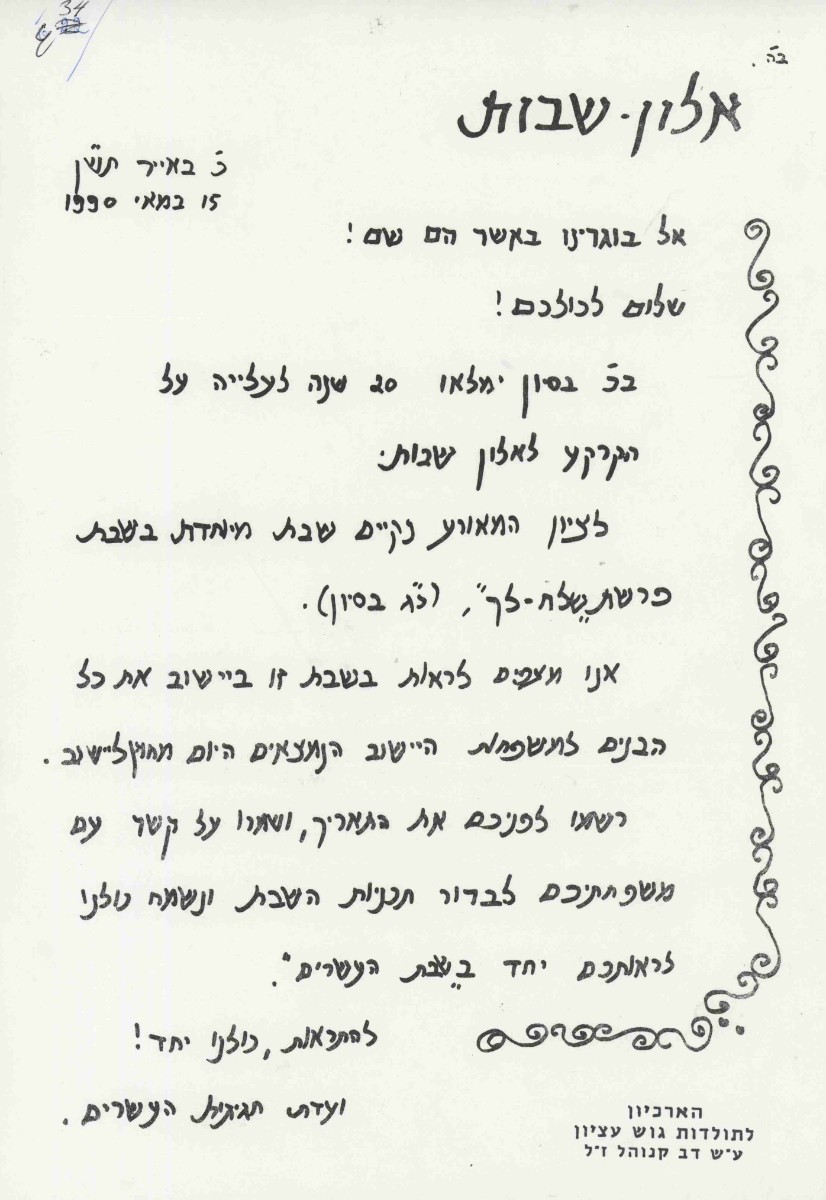 34
ב"ה.
אלון-שבות
כ' באייר תש"ן
15 במאי 1990
אל בוגרינו באשר הם שם!
שלום לכולכם!
בכ' בסיון ימלאו 20 שנה לעלייה על
הקרקע לאלון שבות.
לציון המאורע נקיים שבת מיוחדת בשבת
פרשת "שלח-לך", (כ"ג בסיון).
אנו מצפים לראות בשבת זו ביישוב את כל
הבנים למשפחות היישוב הנמצאים היום מחוץ ליישוב.
רשמו לפניכם את התאריך, ושמרו על קשר עם
משפחתיכם לבדור תכניות השבת ונשמח כולנו
לראותכם יחד ב"שבת העשרים".
להתראות, כולנו יחד!
ועדת חגיגות העשרים.
הארכיון
לתולדות גוש עציון
ע"ש דב קנוהל ז"ל